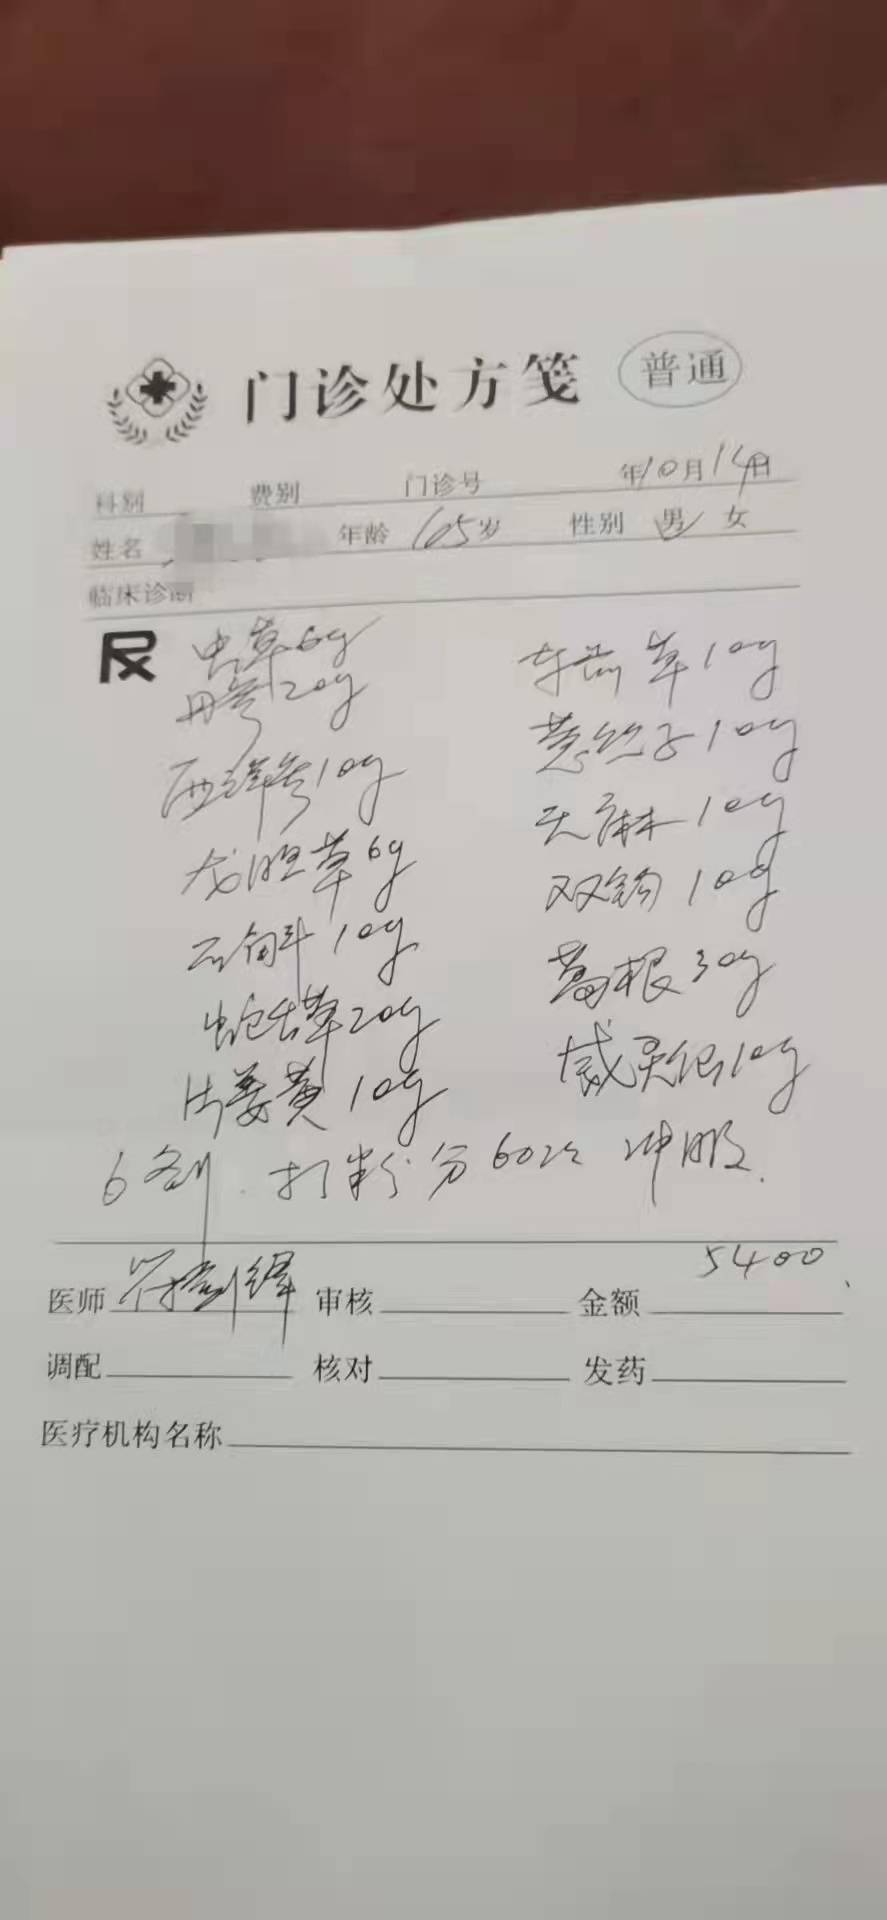 门诊处方笺 普通
科别 费别 门诊号 年10月14日
姓名 年龄 65岁 性别 男 女
临床诊断
R
虫草6g 车前草10g
丹参20g 菟丝子10g
西洋参10g 天麻10g
龙胆草6g 双钩10g
石斛10g 葛根30g
蛇舌草20g 威灵仙10g
片姜黄10g
6剂 打粉分60次 冲服.
医师 审核 金额 5400
调配 核对 发药
医疗机构名称